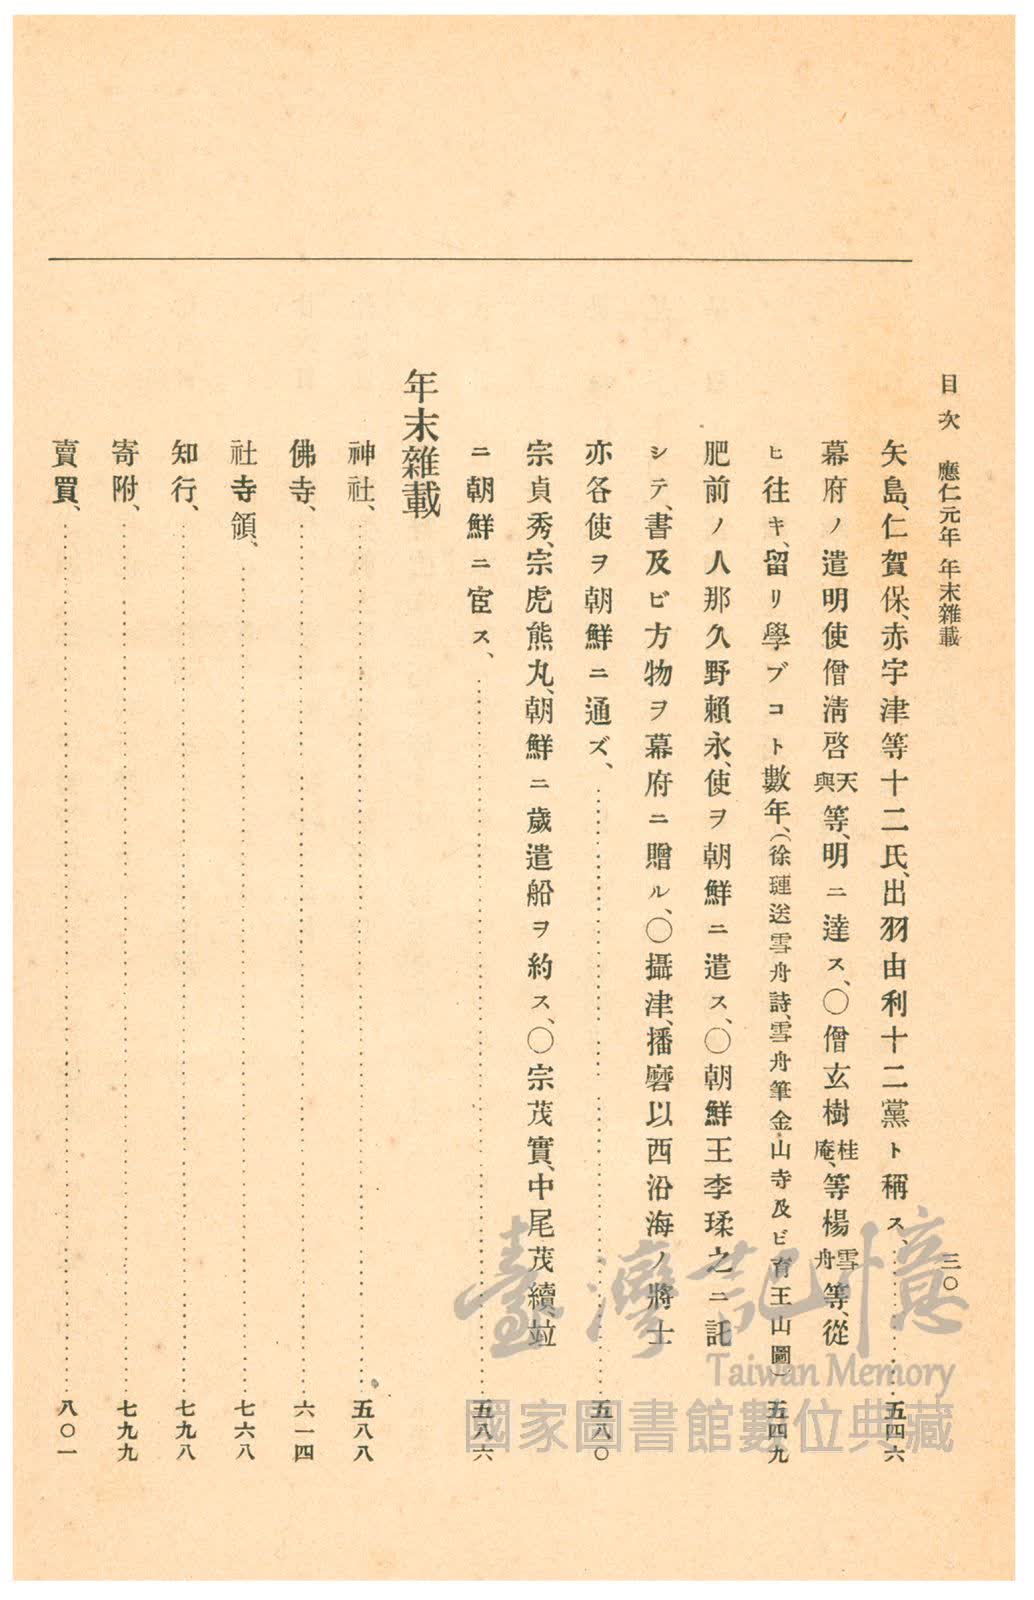 目次 應仁元年 年末雜載 三〇
矢島、仁賀保、赤宇津等十二氏、出羽由利十二黨ト稱ス、……五四六
幕府ノ遣明使僧淸啓天與等、明ニ達ス、〇僧玄樹桂庵、等楊雪舟等、從
ヒ往キ、留リ學ブコト數年、(徐璉送雪舟詩、雪舟筆金山寺及ビ育王山圖)五四九
肥前ノ人那久野賴永、使ヲ朝鮮ニ遣ス、〇朝鮮王李瑈之ニ託
シテ、書及ビ方物ヲ幕府ニ贈ル、〇攝津、播磨以西沿海ノ將士
亦各使ヲ朝鮮ニ通ズ、……五八〇
宗貞秀、宗虎熊丸、朝鮮ニ歲遣船ヲ約ス、〇宗茂實、中尾茂續、竝
ニ朝鮮ニ宦ス、……五八六
年末雜載
神社、……五八八
佛寺、……六一四
社寺領、……七六八
知行、……七九八
寄附、……七九九
賣買、……八〇一
臺灣記憶
Taiwan Memory
國家圖書館數位典藏